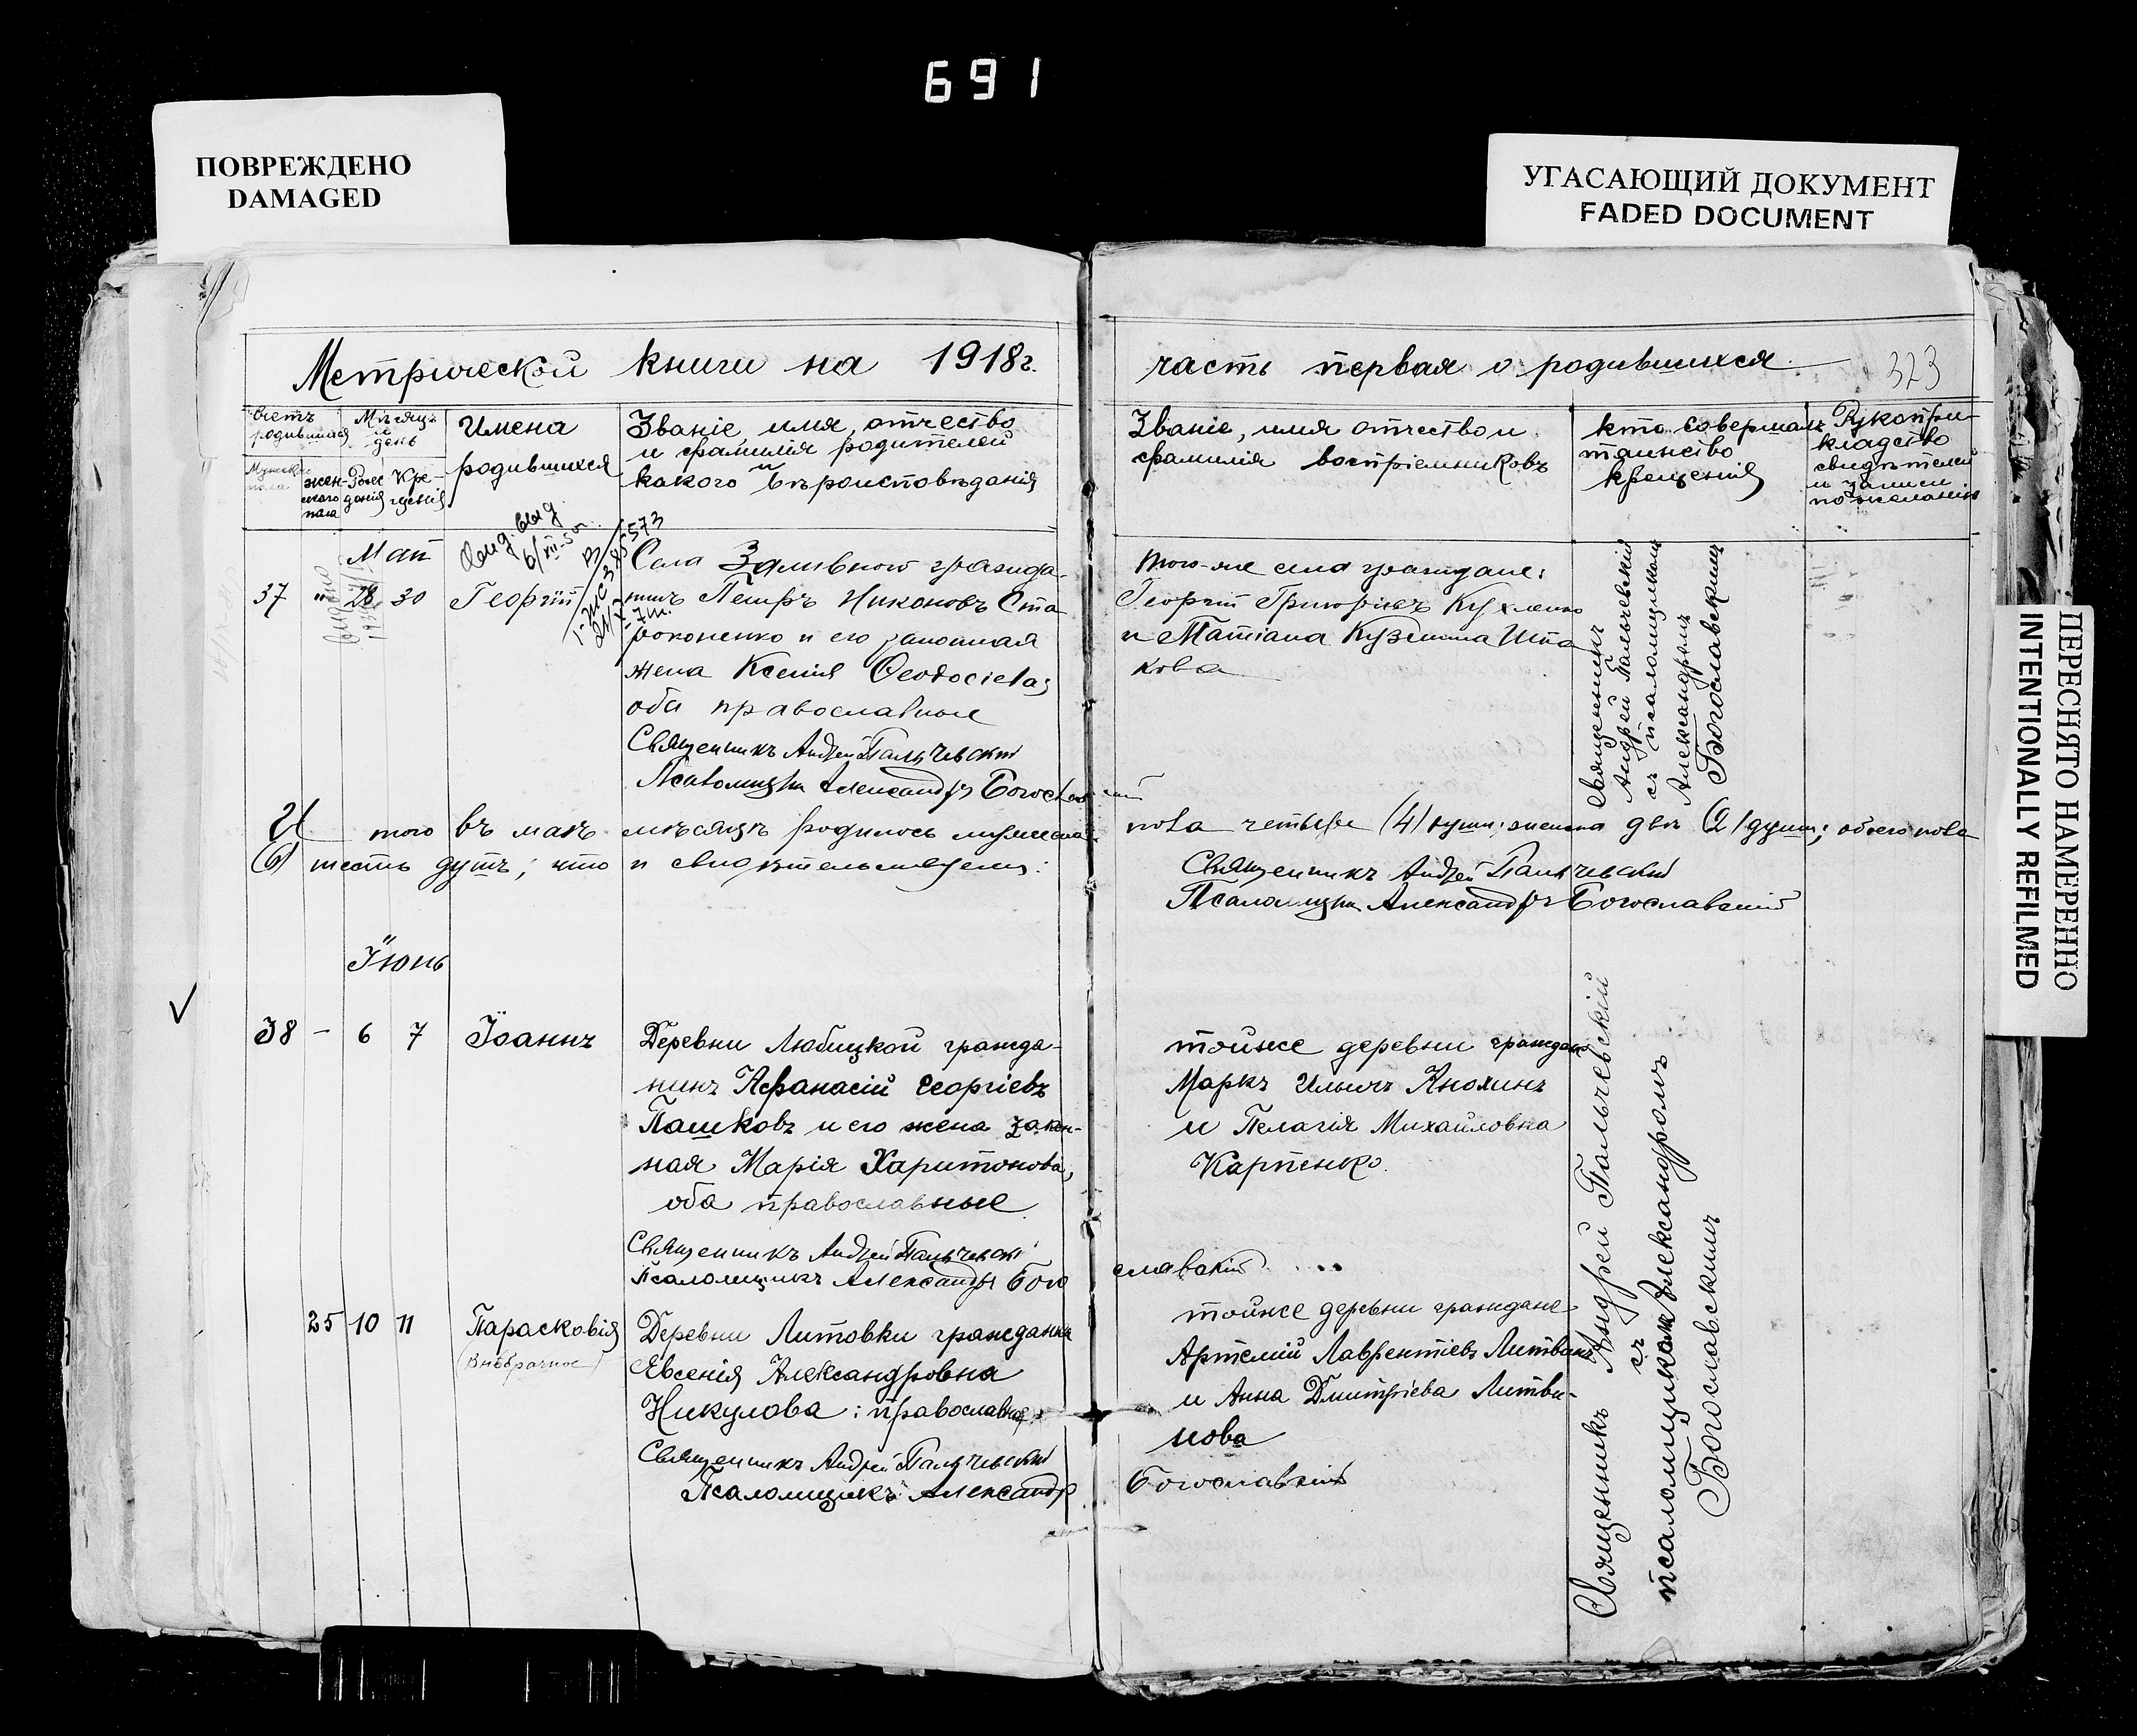 691
ПОВРЕЖДЕНО
DAMAGED
УГАСАЮЩИЙ ДОКУМЕНТ
FADED DOCUMENT
ПЕРЕСНЯТО НАМЕРЕННО
INTENTIONALLY REFILMED
Метрической книги на 1918г.
часть первая о родившихся
323
Счетъ родившихся
Мѣсяцъ и день
Имена родившихся
Званіе, имя, отчество
и фамилія родителей
и
какого вѣроисповѣданія
Мужеска пола
женскаго пола
Рождения
Крещенія
Званіе, имя отчество и
фамилія воспріемниковъ
кто совершалъ
таинство
крещенія
Рукоприкладство
свидѣтелей
и записи
по желанію
Май
37 " 28 30 Георгій
Села Заливного гражда-
нинъ Петръ Никоновъ Ста
роконенко и его законная
жена Ксенія Ѳеодосіева;
оба православные
Священникъ Андрей Пальчевскій
Псаломщикъ Александръ Богославскій
того-же села граждане:
Георгій Григорьевъ Кухленко
и Татіана Кузьмина Шпа
кова
Священникъ
Андрей Пальчевскій
съ псаломщикомъ
Александромъ
Богославскимъ
Итого въ маѣ мѣсяцѣ родилось мужеска
пола четыре (4) душ; женска двѣ (2) душ; обоего пола
(6) шесть душъ; что и свидѣтельствуемъ:
Священникъ Андрей Пальчевскій
Псаломщикъ Александръ Богославскій
Іюнь
38 – 6 7 Іоаннъ
Деревни Любицкой гражда-
нинъ Афанасій Георгіевъ
Пашковъ и его жена закон-
ная Марія Харитонова,
оба православные
Священникъ Андрей Пальчевскій
Псаломщикъ Александръ Бого
славскій
тойже деревни граждане
Маркъ Ильичъ Анохинъ
и Пелагія Михайловна
Карпенко.
25 10 11 Парасковія
(Внѣбрачное)
Деревни Литовки гражданка
Евсенія Александровна
Никулова: православная
Священникъ Андрей Пальчевскій
Псаломщикъ Александр
Богославскій
тойже деревни граждане
Артемій Лаврентіевъ Литвинъ
и Анна Дмитріева Литви-
нова
Священникъ Андрей Пальчевскій
съ
псаломщикомъ Александромъ
Богославскимъ